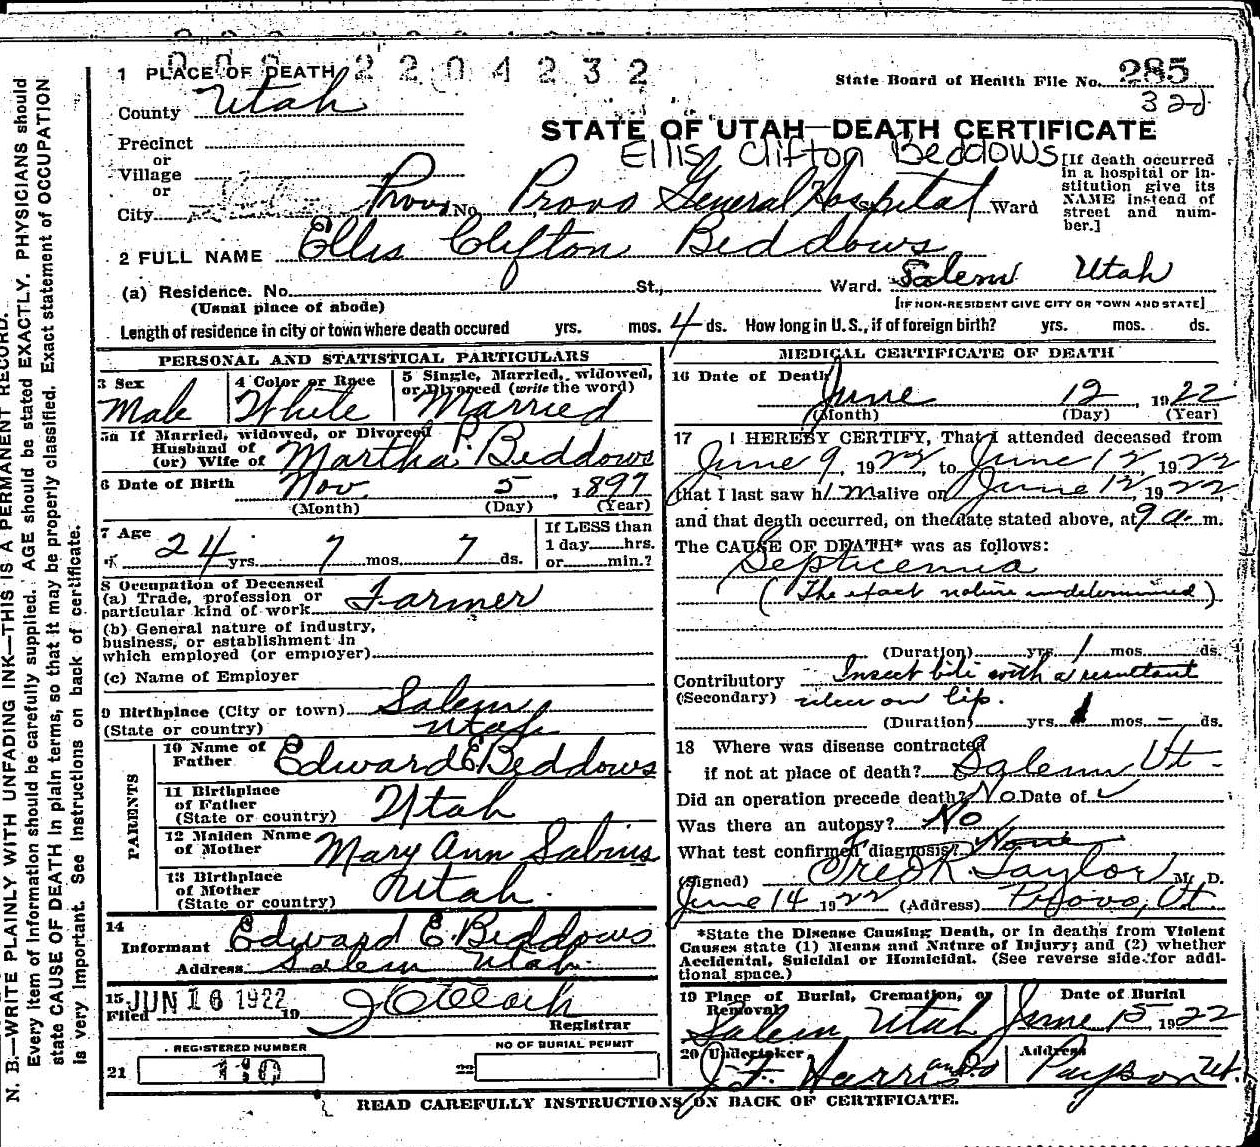 2204232
1 PLACE OF DEATH
State Board of Health File No. 285
32d
County Utah
STATE OF UTAH—DEATH CERTIFICATE
Precinct
or
Village
or
Ellis Clifton Beddows
[If death occurred in a hospital or institution give its NAME instead of street and number.]
City Provo No. Provo General Hospital Ward
2 FULL NAME Ellis Clifton Beddows
(a) Residence. No. St., Ward. Salem Utah
(Usual place of abode) [IF NON-RESIDENT GIVE CITY OR TOWN AND STATE]
Length of residence in city or town where death occured yrs. mos. 4 ds. How long in U.S., if of foreign birth? yrs. mos. ds.
PERSONAL AND STATISTICAL PARTICULARS
3 Sex Male
4 Color or Race White
5 Single, Married, widowed, or Divorced (write the word) Married
5a If Married, widowed, or Divorced
Husband of
(or) Wife of Martha P. Beddows
6 Date of Birth Nov. 5, 1897
(Month) (Day) (Year)
7 Age 24 yrs. 7 mos. 7 ds.
If LESS than
1 day hrs.
or min.?
8 Occupation of Deceased
(a) Trade, profession or
particular kind of work Farmer
(b) General nature of industry,
business, or establishment in
which employed (or employer)
(c) Name of Employer
9 Birthplace (City or town) Salem
(State or country) Utah
PARENTS
10 Name of Father Edward E Beddows
11 Birthplace of Father (State or country) Utah
12 Maiden Name of Mother Mary Ann Sabins
13 Birthplace of Mother (State or country) Utah.
14
Informant Edward E. Beddows
Address Salem Utah.
15 Filed JUN 16 1922 19
Registrar
REGISTERED NUMBER
21 110
NO OF BURIAL PERMIT
22
MEDICAL CERTIFICATE OF DEATH
16 Date of Death June 12, 1922
(Month) (Day) (Year)
17 I HEREBY CERTIFY, That I attended deceased from
June 9, 1922, to June 12, 1922
that I last saw him alive on June 12, 1922
and that death occurred, on the date stated above, at 9 a.m.
The CAUSE OF DEATH* was as follows:
Septicemia
(The exact nature undetermined)
(Duration) yrs 1 mos. ds.
Contributory Insect bite with a resultant
(Secondary) ulcer on lip.
(Duration) yrs 1 mos. – ds.
18 Where was disease contracted
if not at place of death? Salem Ut.
Did an operation precede death? No Date of
Was there an autopsy? No
What test confirmed diagnosis? None
(Signed) Fred K. Taylor M. D.
June 14 1922 (Address) Provo, Ut.
*State the Disease Causing Death, or in deaths from Violent
Causes state (1) Means and Nature of Injury; and (2) whether
Accidental, Suicidal or Homicidal. (See reverse side for addi-
tional space.)
19 Place of Burial, Cremation, or Removal Salem Utah
Date of Burial June 15, 1922
20 Undertaker J. F. Harris and Co
Address Payson Ut.
READ CAREFULLY INSTRUCTIONS ON BACK OF CERTIFICATE.
N. B.—WRITE PLAINLY WITH UNFADING INK—THIS IS A PERMANENT RECORD.
Every item of information should be carefully supplied. AGE should be stated EXACTLY. PHYSICIANS should
state CAUSE OF DEATH in plain terms, so that it may be properly classified. Exact statement of OCCUPATION
is very important. See instructions on back of certificate.